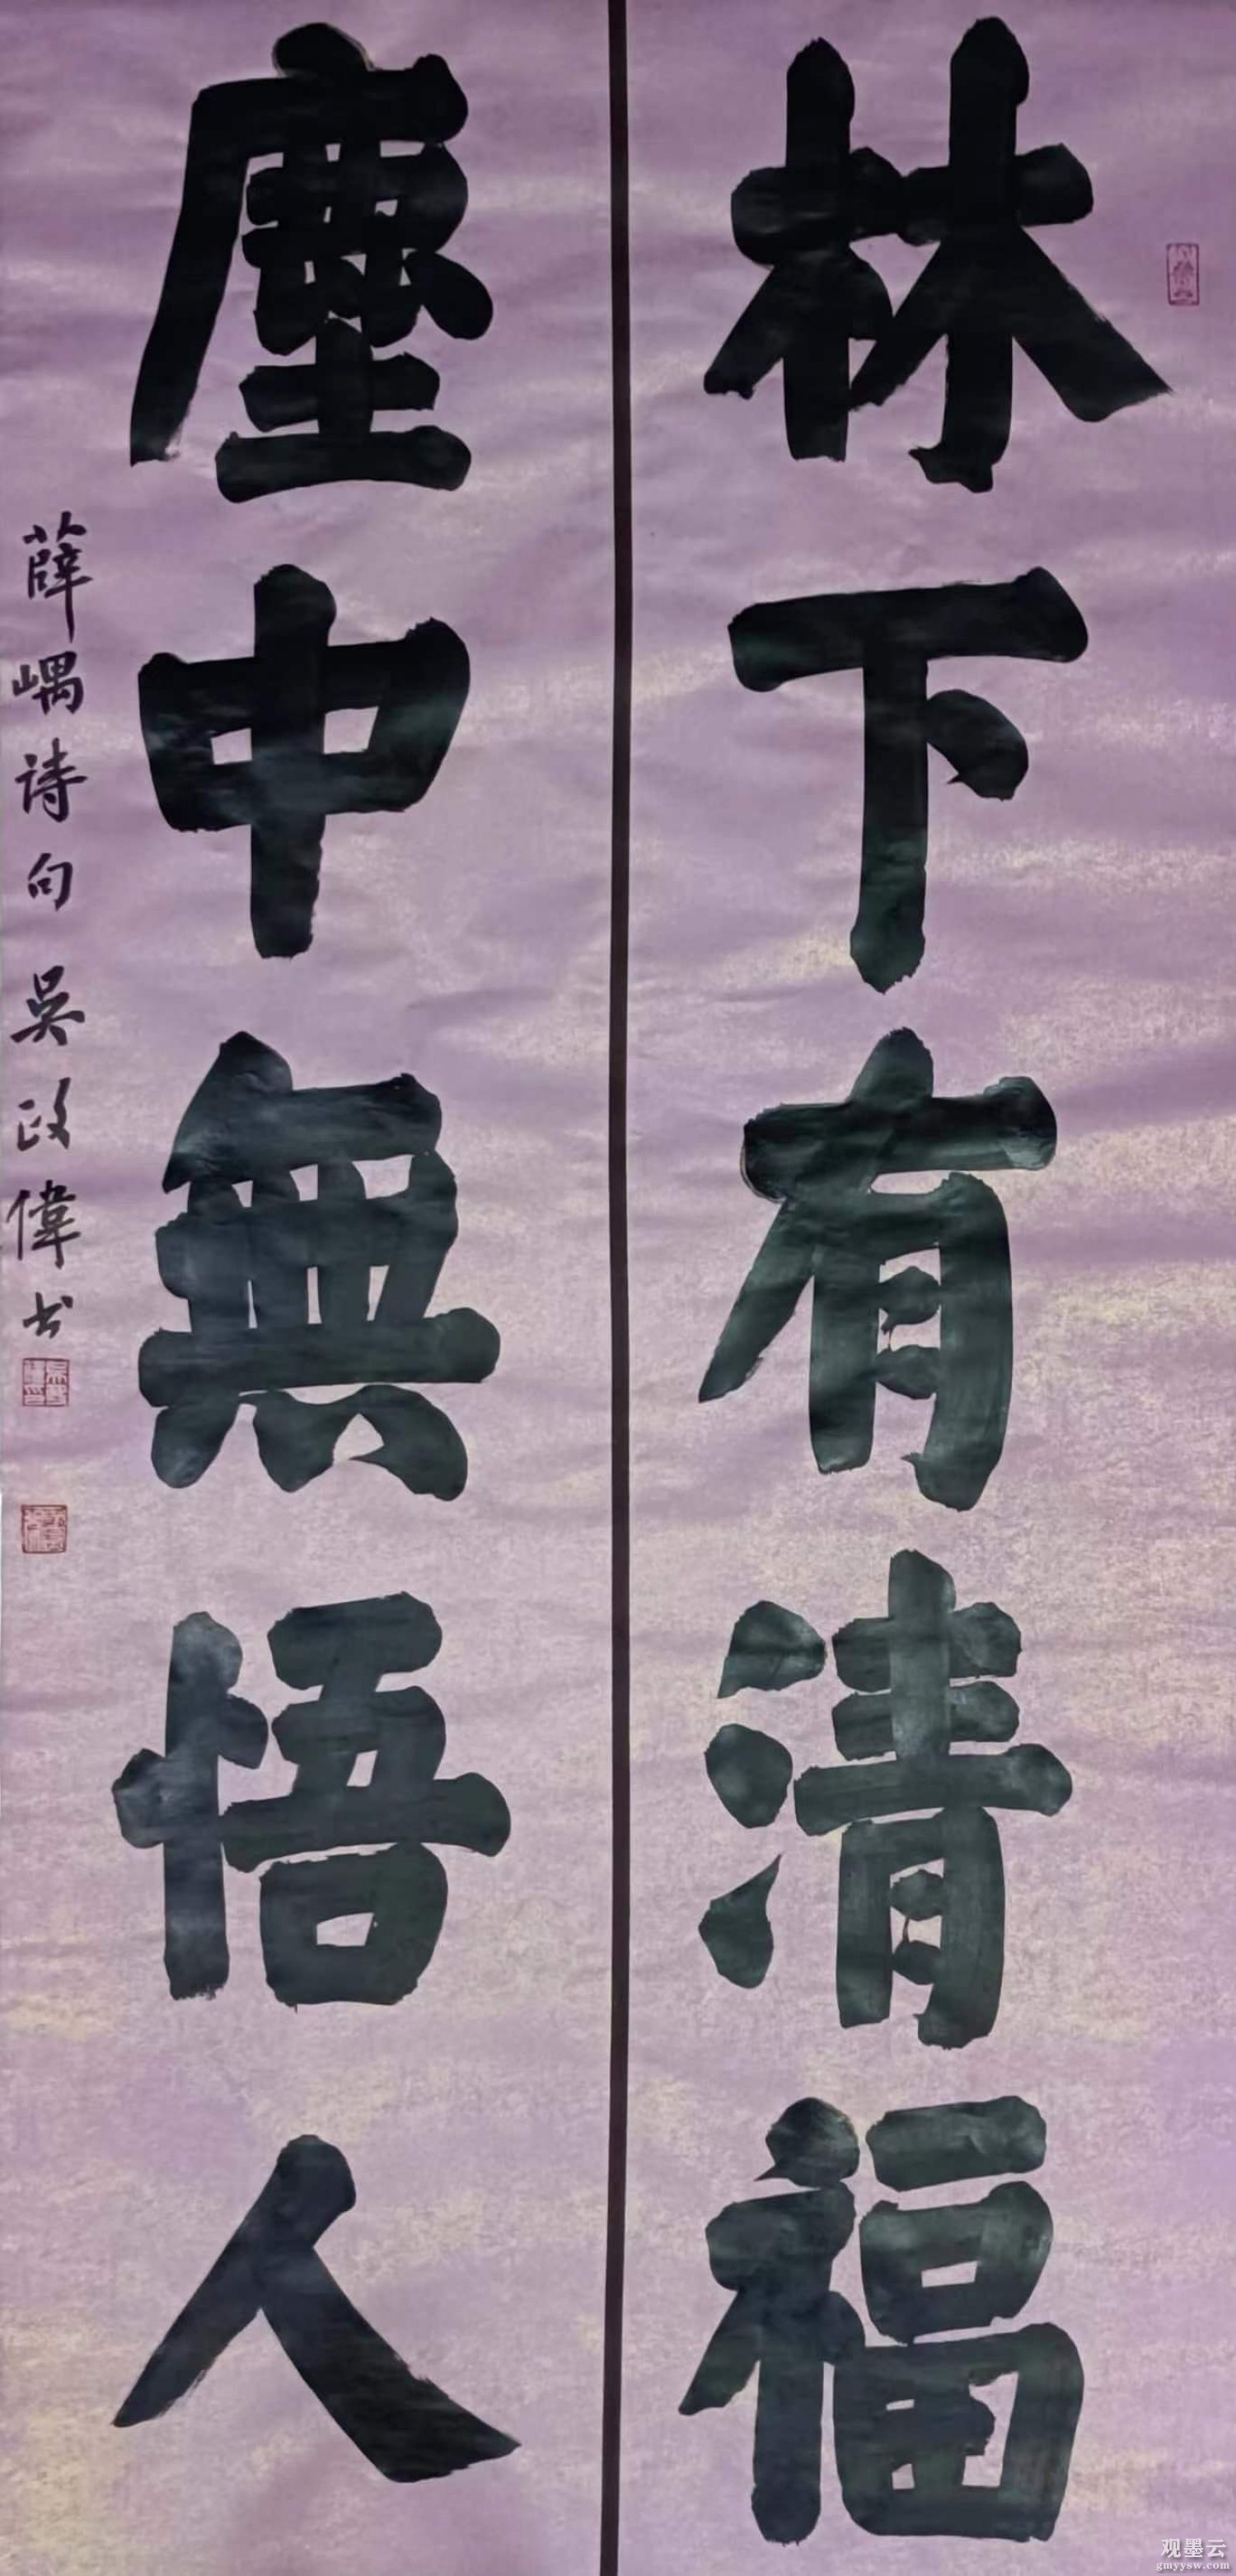 林下有清福
塵中無悟人
薛嵎诗句 吴政偉书
观墨云
gmyysw.com